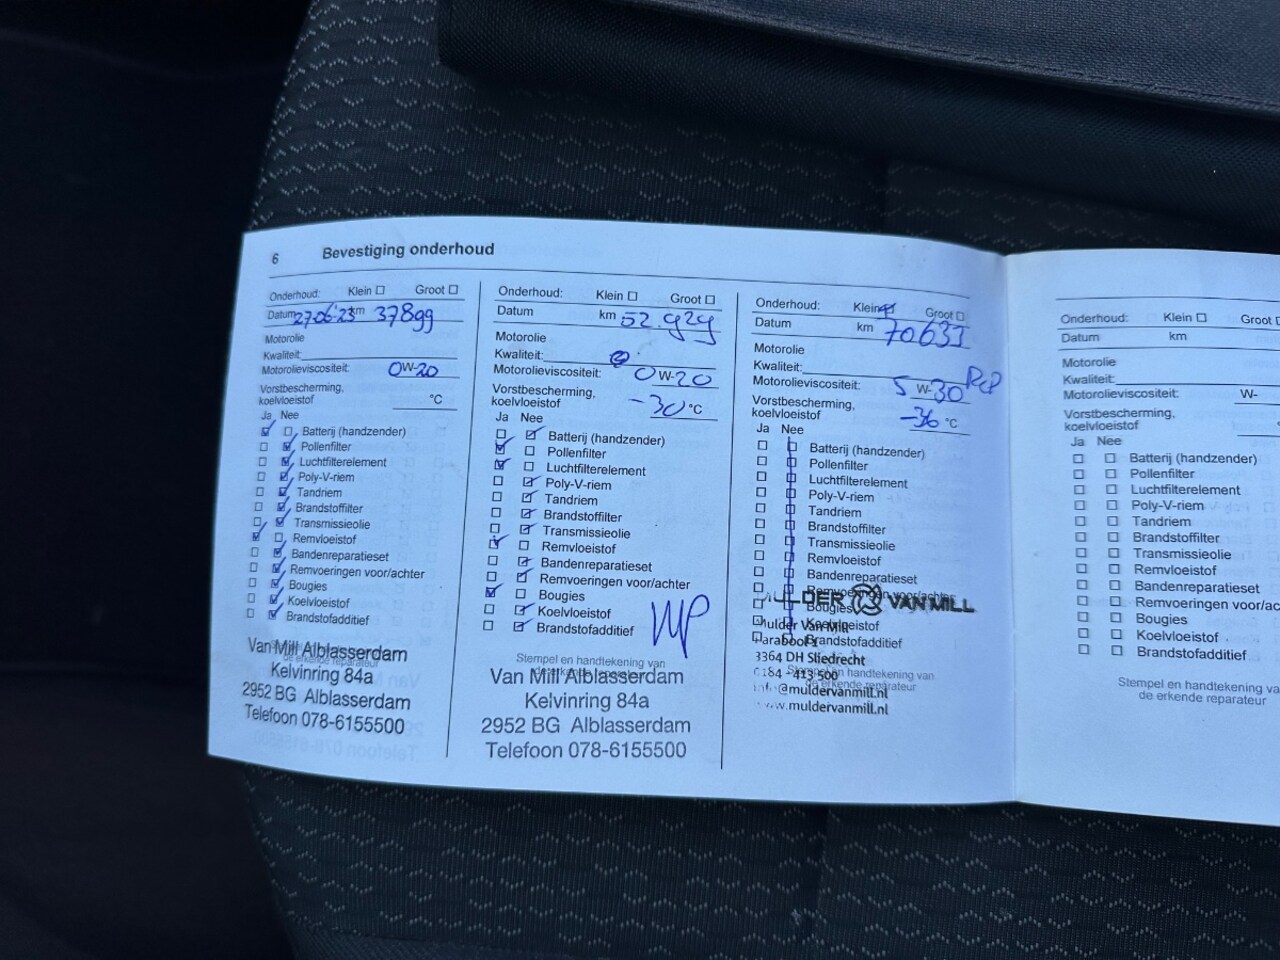 6 Bevestiging onderhoud
Onderhoud: Klein Groot
Datum 27-06-23 km 37899
Motorolie
Kwaliteit:
Motorolieviscositeit: 0 W-20
Vorstbescherming,
koelvloeistof °C
Ja Nee
Batterij (handzender)
Pollenfilter
Luchtfilterelement
Poly-V-riem
Tandriem
Brandstoffilter
Transmissieolie
Remvloeistof
Bandenreparatieset
Remvoeringen voor/achter
Bougies
Koelvloeistof
Brandstofadditief
de erkende reparateur
Van Mill Alblasserdam
Kelvinring 84a
2952 BG Alblasserdam
Telefoon 078-6155500
Onderhoud: Klein Groot
Datum km 52.929
Motorolie
Kwaliteit:
Motorolieviscositeit: 0 W-20
Vorstbescherming,
koelvloeistof -30 °C
Ja Nee
Batterij (handzender)
Pollenfilter
Luchtfilterelement
Poly-V-riem
Tandriem
Brandstoffilter
Transmissieolie
Remvloeistof
Bandenreparatieset
Remvoeringen voor/achter
Bougies
Koelvloeistof
Brandstofadditief
Stempel en handtekening van
Van Mill Alblasserdam
Kelvinring 84a
2952 BG Alblasserdam
Telefoon 078-6155500
Onderhoud: Klein Groot
Datum km 70633
Motorolie
Kwaliteit:
Motorolieviscositeit: 5 W-30
Vorstbescherming,
koelvloeistof -36 °C
Ja Nee
Batterij (handzender)
Pollenfilter
Luchtfilterelement
Poly-V-riem
Tandriem
Brandstoffilter
Transmissieolie
Remvloeistof
Bandenreparatieset
Remvoeringen voor/achter
Bougies
Koelvloeistof
Brandstofadditief
VAN MILL
Mulder Van Mill
3364 DH Sliedrecht
Stempel en handtekening van
de erkende reparateur
0184 - 413 500
@muldervanmill.nl
www.muldervanmill.nl
Onderhoud: Klein Groot
Datum km
Motorolie
Kwaliteit:
Motorolieviscositeit: W-
Vorstbescherming,
koelvloeistof
Ja Nee
Batterij (handzender)
Pollenfilter
Luchtfilterelement
Poly-V-riem
Tandriem
Brandstoffilter
Transmissieolie
Remvloeistof
Bandenreparatieset
Remvoeringen voor/ac
Bougies
Koelvloeistof
Brandstofadditief
Stempel en handtekening va
de erkende reparateur